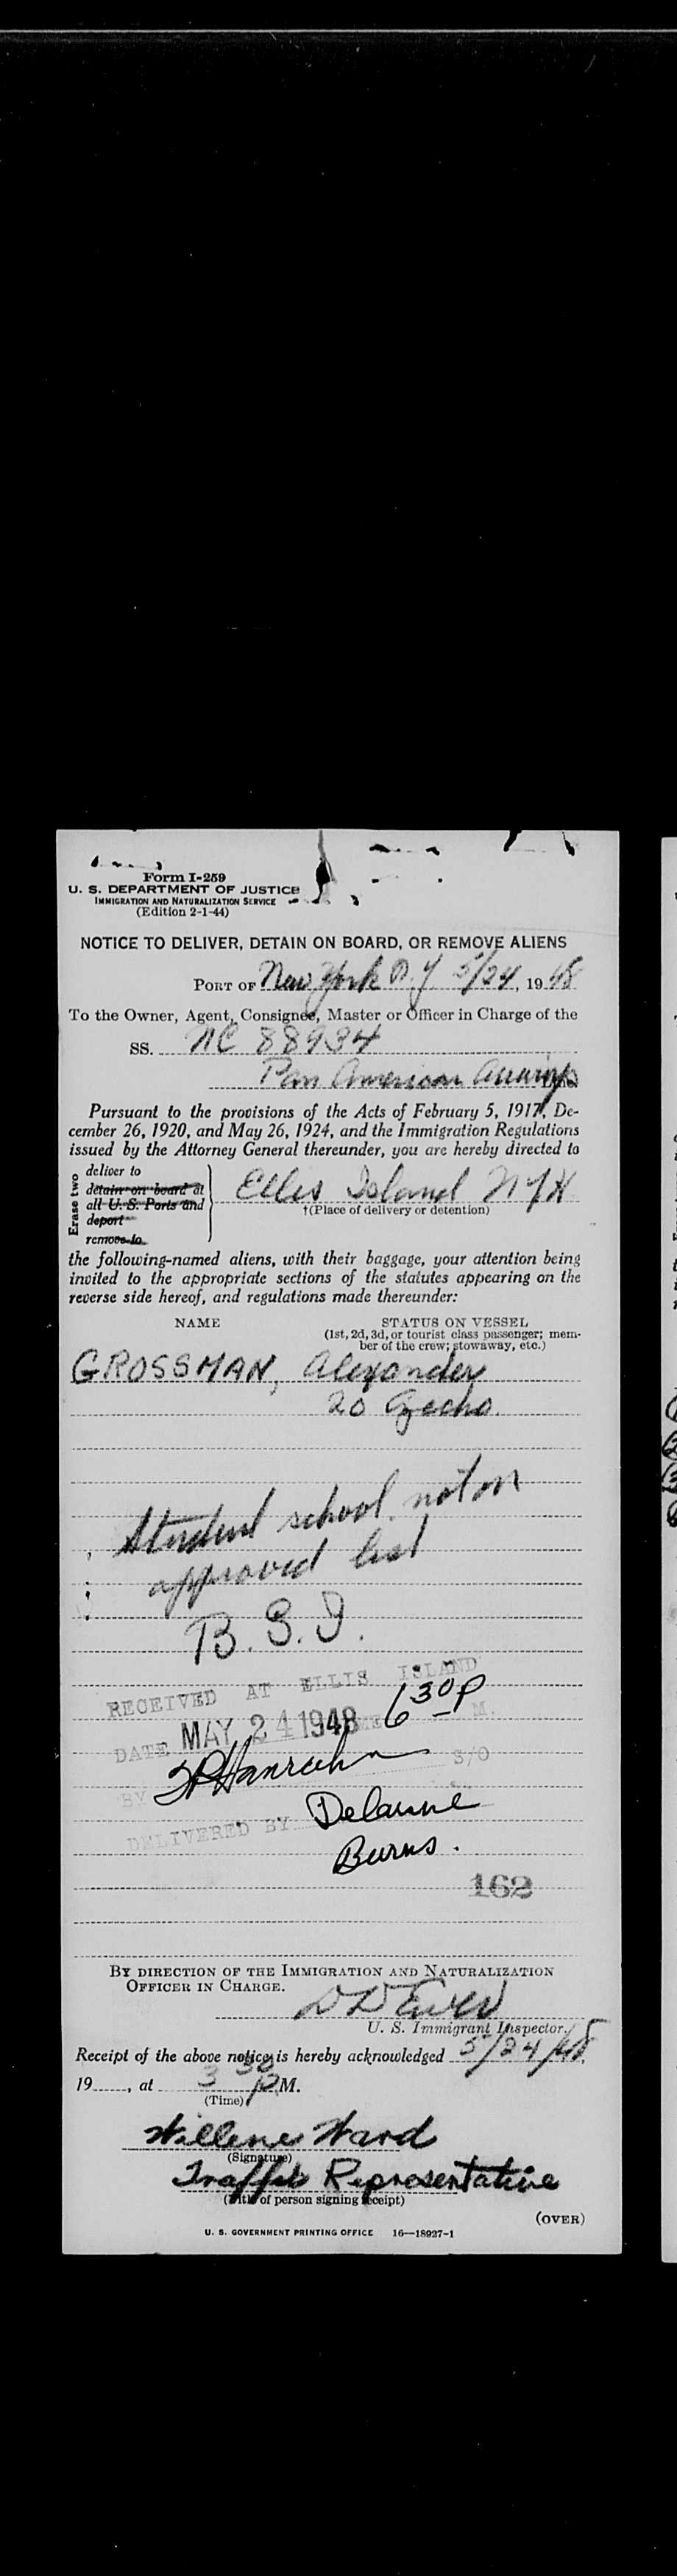 Form I-259
U. S. DEPARTMENT OF JUSTICE
IMMIGRATION AND NATURALIZATION SERVICE
(Edition 2-1-44)
NOTICE TO DELIVER, DETAIN ON BOARD, OR REMOVE ALIENS
PORT OF New York N.Y 5/24, 1948
To the Owner, Agent, Consignee, Master or Officer in Charge of the
SS. NC 88934
Pan American
Pursuant to the provisions of the Acts of February 5, 1917, De-
cember 26, 1920, and May 26, 1924, and the Immigration Regulations
issued by the Attorney General thereunder, you are hereby directed to
Erase two
deliver to
detain on board at
all U. S. Ports and
deport
remove to
Ellis Island NYH
†(Place of delivery or detention)
the following-named aliens, with their baggage, your attention being
invited to the appropriate sections of the statutes appearing on the
reverse side hereof, and regulations made thereunder:
NAME STATUS ON VESSEL
(1st, 2d, 3d, or tourist class passenger; mem-
ber of the crew; stowaway, etc.)
GROSSMAN, Alexander
20 Czecho.
Student school not on
approved list
B.S.I.
RECEIVED AT ELLIS ISLAND
DATE MAY 24 1948 TIME 6 30 P M.
BY Hanrahan S/O
DELIVERED BY Delaune
Burns.
162
BY DIRECTION OF THE IMMIGRATION AND NATURALIZATION
OFFICER IN CHARGE.
U. S. Immigrant Inspector.
Receipt of the above notice is hereby acknowledged 5/24/48,
19____, at 3 30 P.M.
(Time)
Willene Ward
(Signature)
Traffic Representative
(Title of person signing receipt)
(OVER)
U. S. GOVERNMENT PRINTING OFFICE 16—18927-1